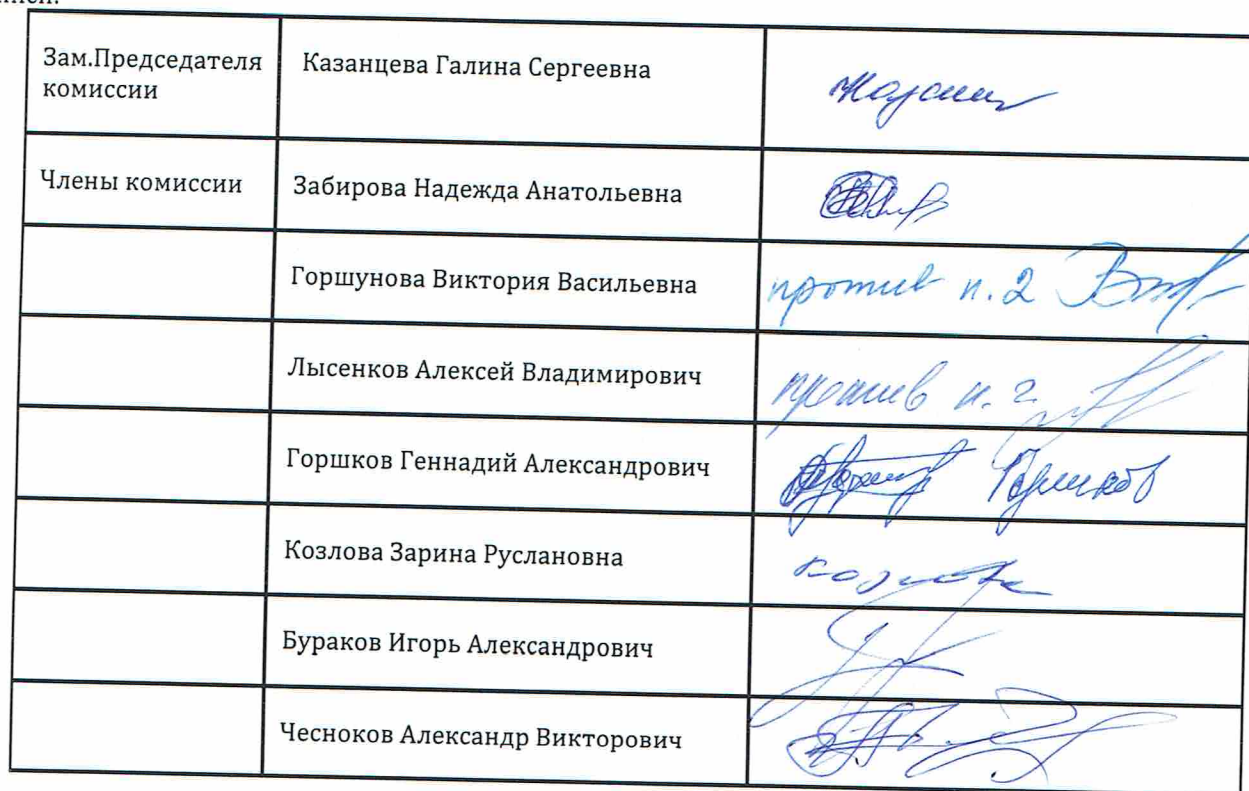 Зам.Председателя
комиссии
Казанцева Галина Сергеевна
Члены комиссии
Забирова Надежда Анатольевна
Горшунова Виктория Васильевна
против п.2
Лысенков Алексей Владимирович
против п.2
Горшков Геннадий Александрович
Горшков
Козлова Зарина Руслановна
Козлова
Бураков Игорь Александрович
Чесноков Александр Викторович